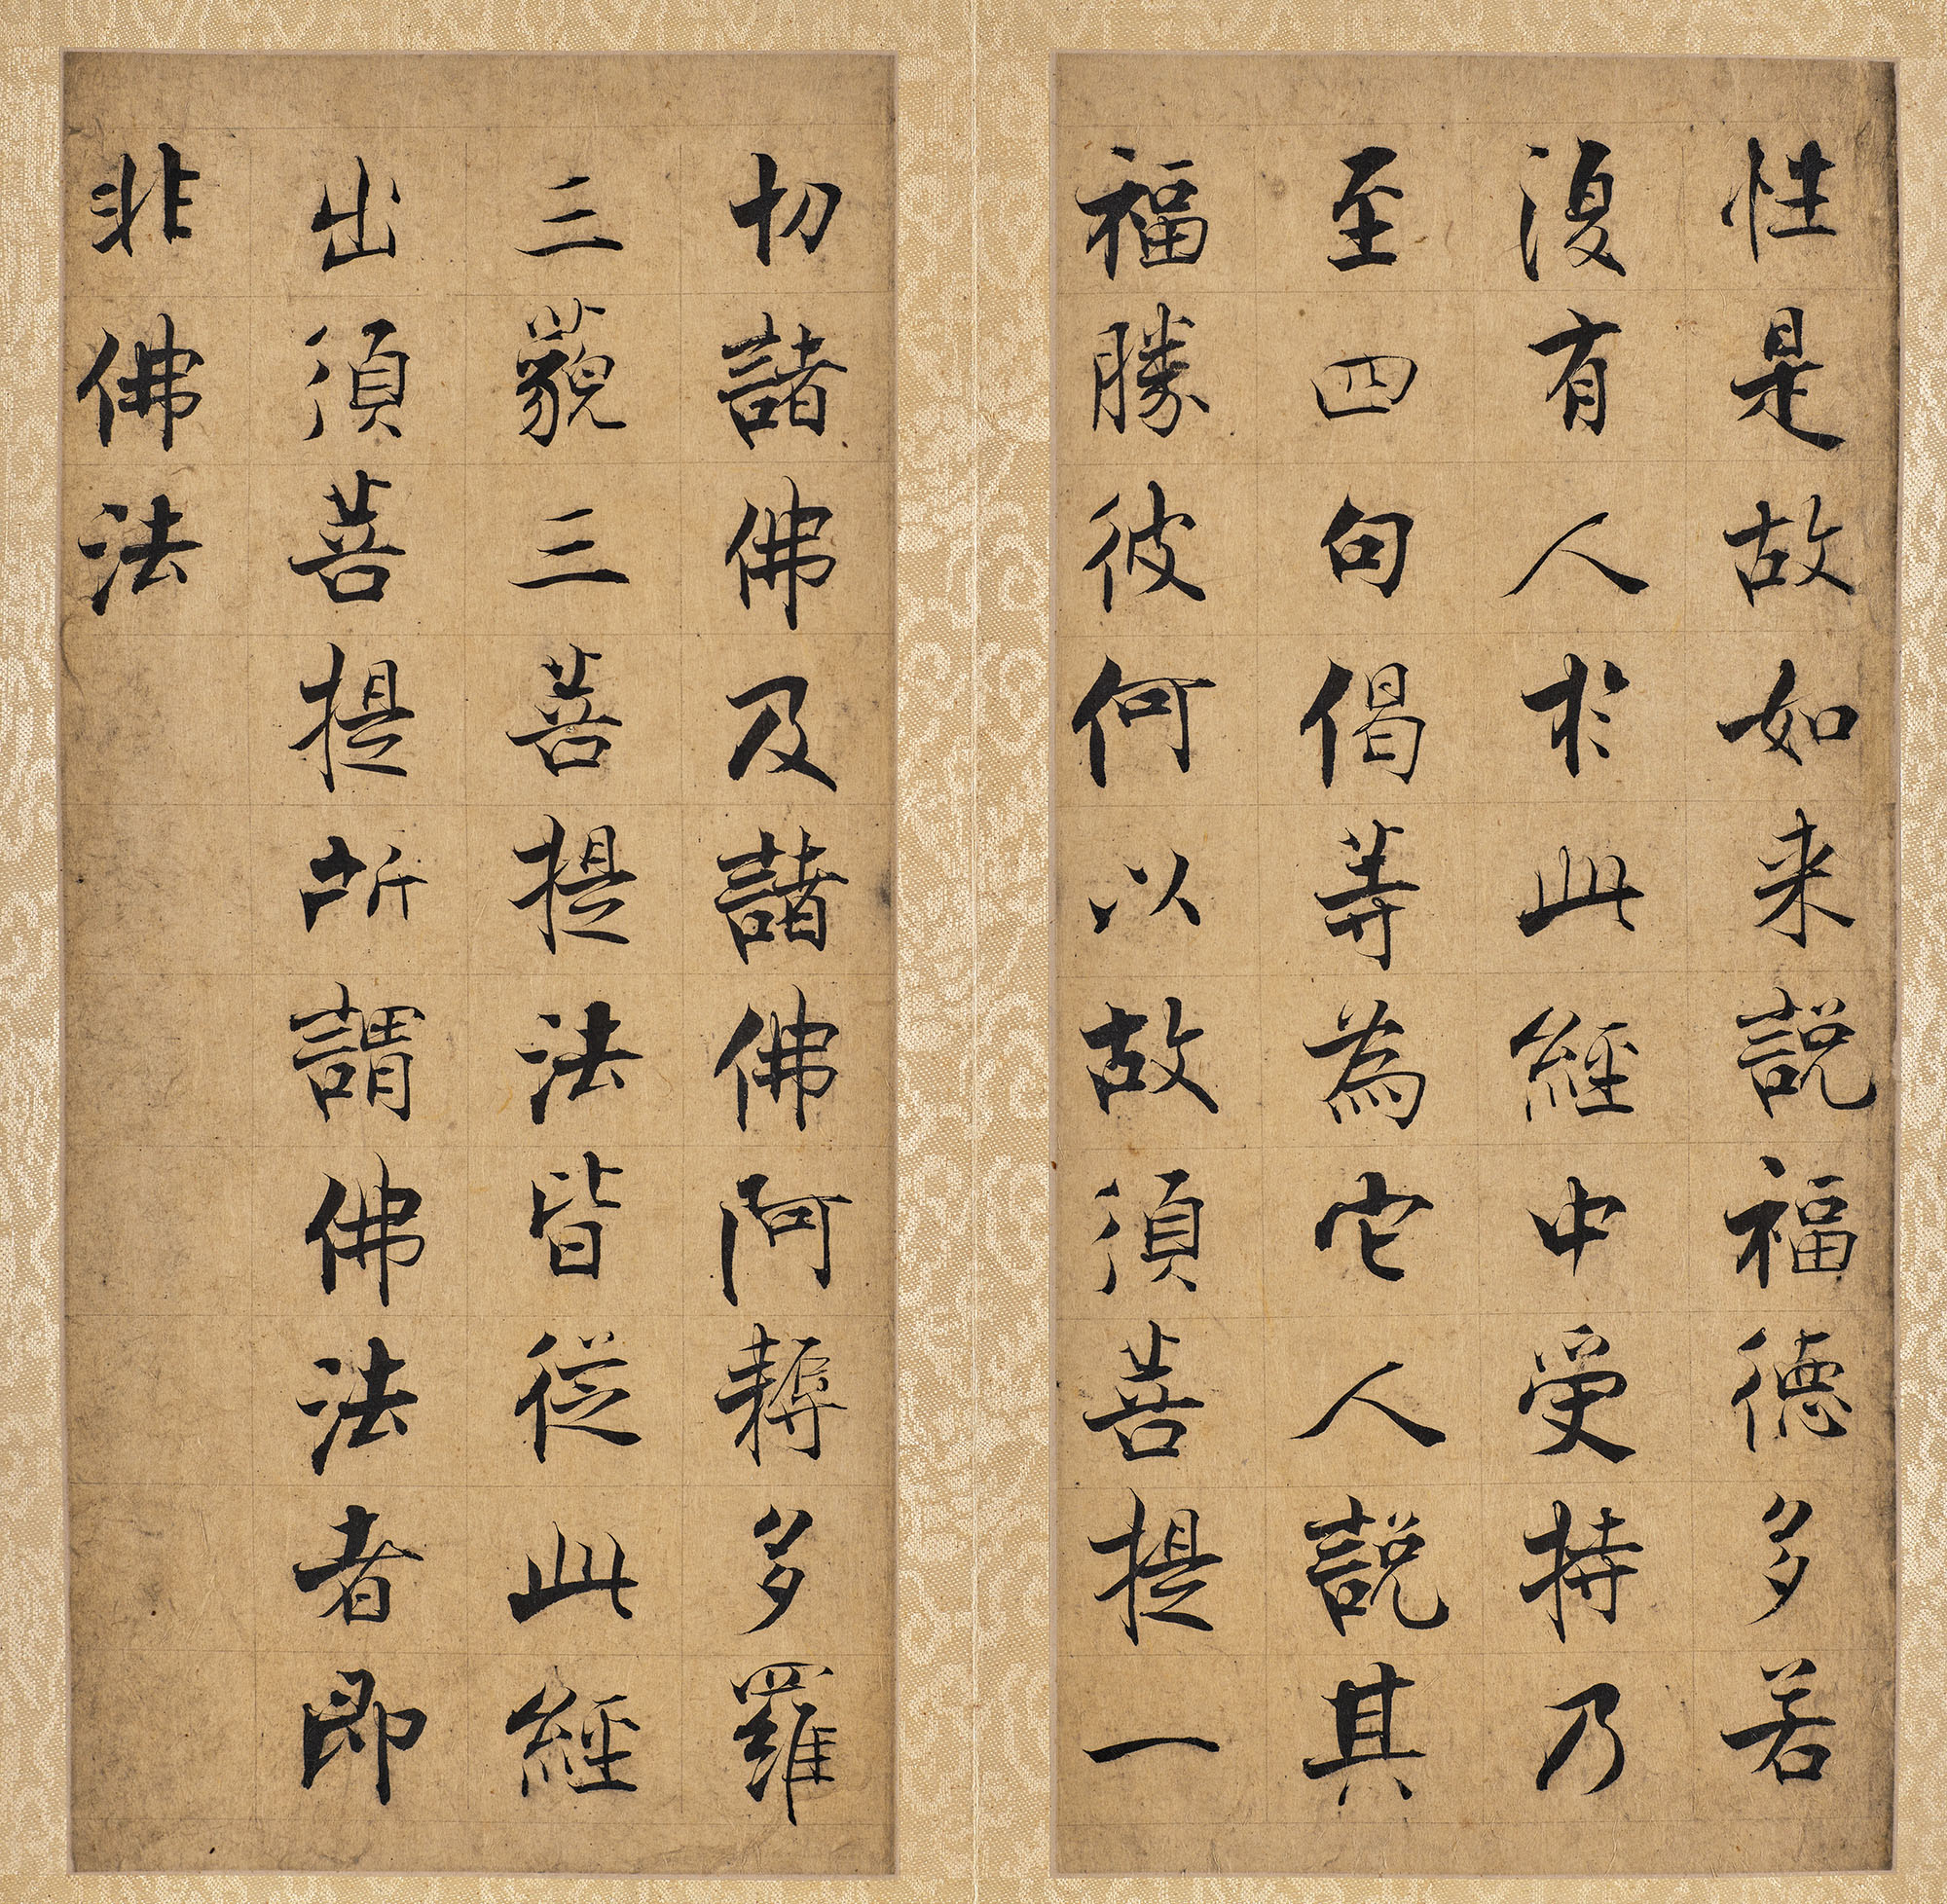 性是故如来説福德多若
復有人於此經中受持乃
至四句偈等為它人說其
福勝彼何以故須菩提一
切諸佛及諸佛阿耨多羅
三藐三菩提法皆従此經
出須菩提所謂佛法者即
非佛法